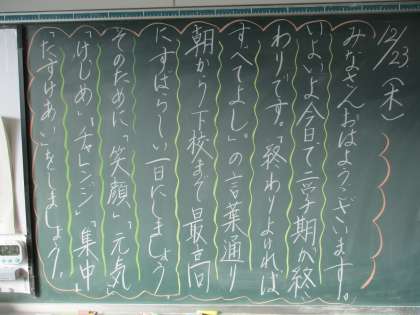 12/23(木)
みなさんおはようございます。
いよいよ今日で二学期が終
わりです。「終わりよければ
すべてよし。」の言葉通り
朝から下校まで最高
にすばらしい一日にしましょう。
そのために「笑顔」「元気」
「けじめ」「チャレンジ」「集中」
「たすけあい」をしましょう。